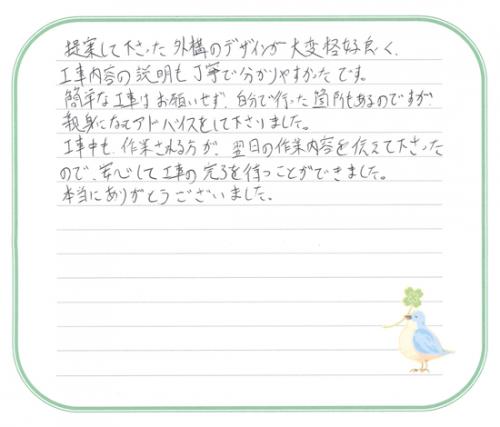 提案して下さった外構のデザインが大変格好良く、
工事内容の説明も丁寧で分かりやすかったです。
簡単な工事はお願いせず、自分で行った箇所もあるのですが
親身になってアドバイスをして下さいました。
工事中も、作業される方が、翌日の作業内容を伝えて下さった
ので、安心して工事の完了を待つことができました。
本当にありがとうございました。